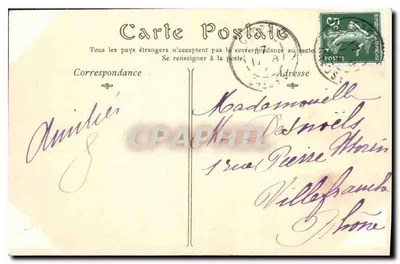 Carte Postale
Tous les pays étrangers n'acceptent pas la correspondance au recto.
Se renseigner à la poste.
Correspondance
Adresse
5c
POSTES
7
Amitiés
CPAPHIL
Mademoiselle
M. Desnoëls
1 rue Pierre Morin
Villefranche
Rhône